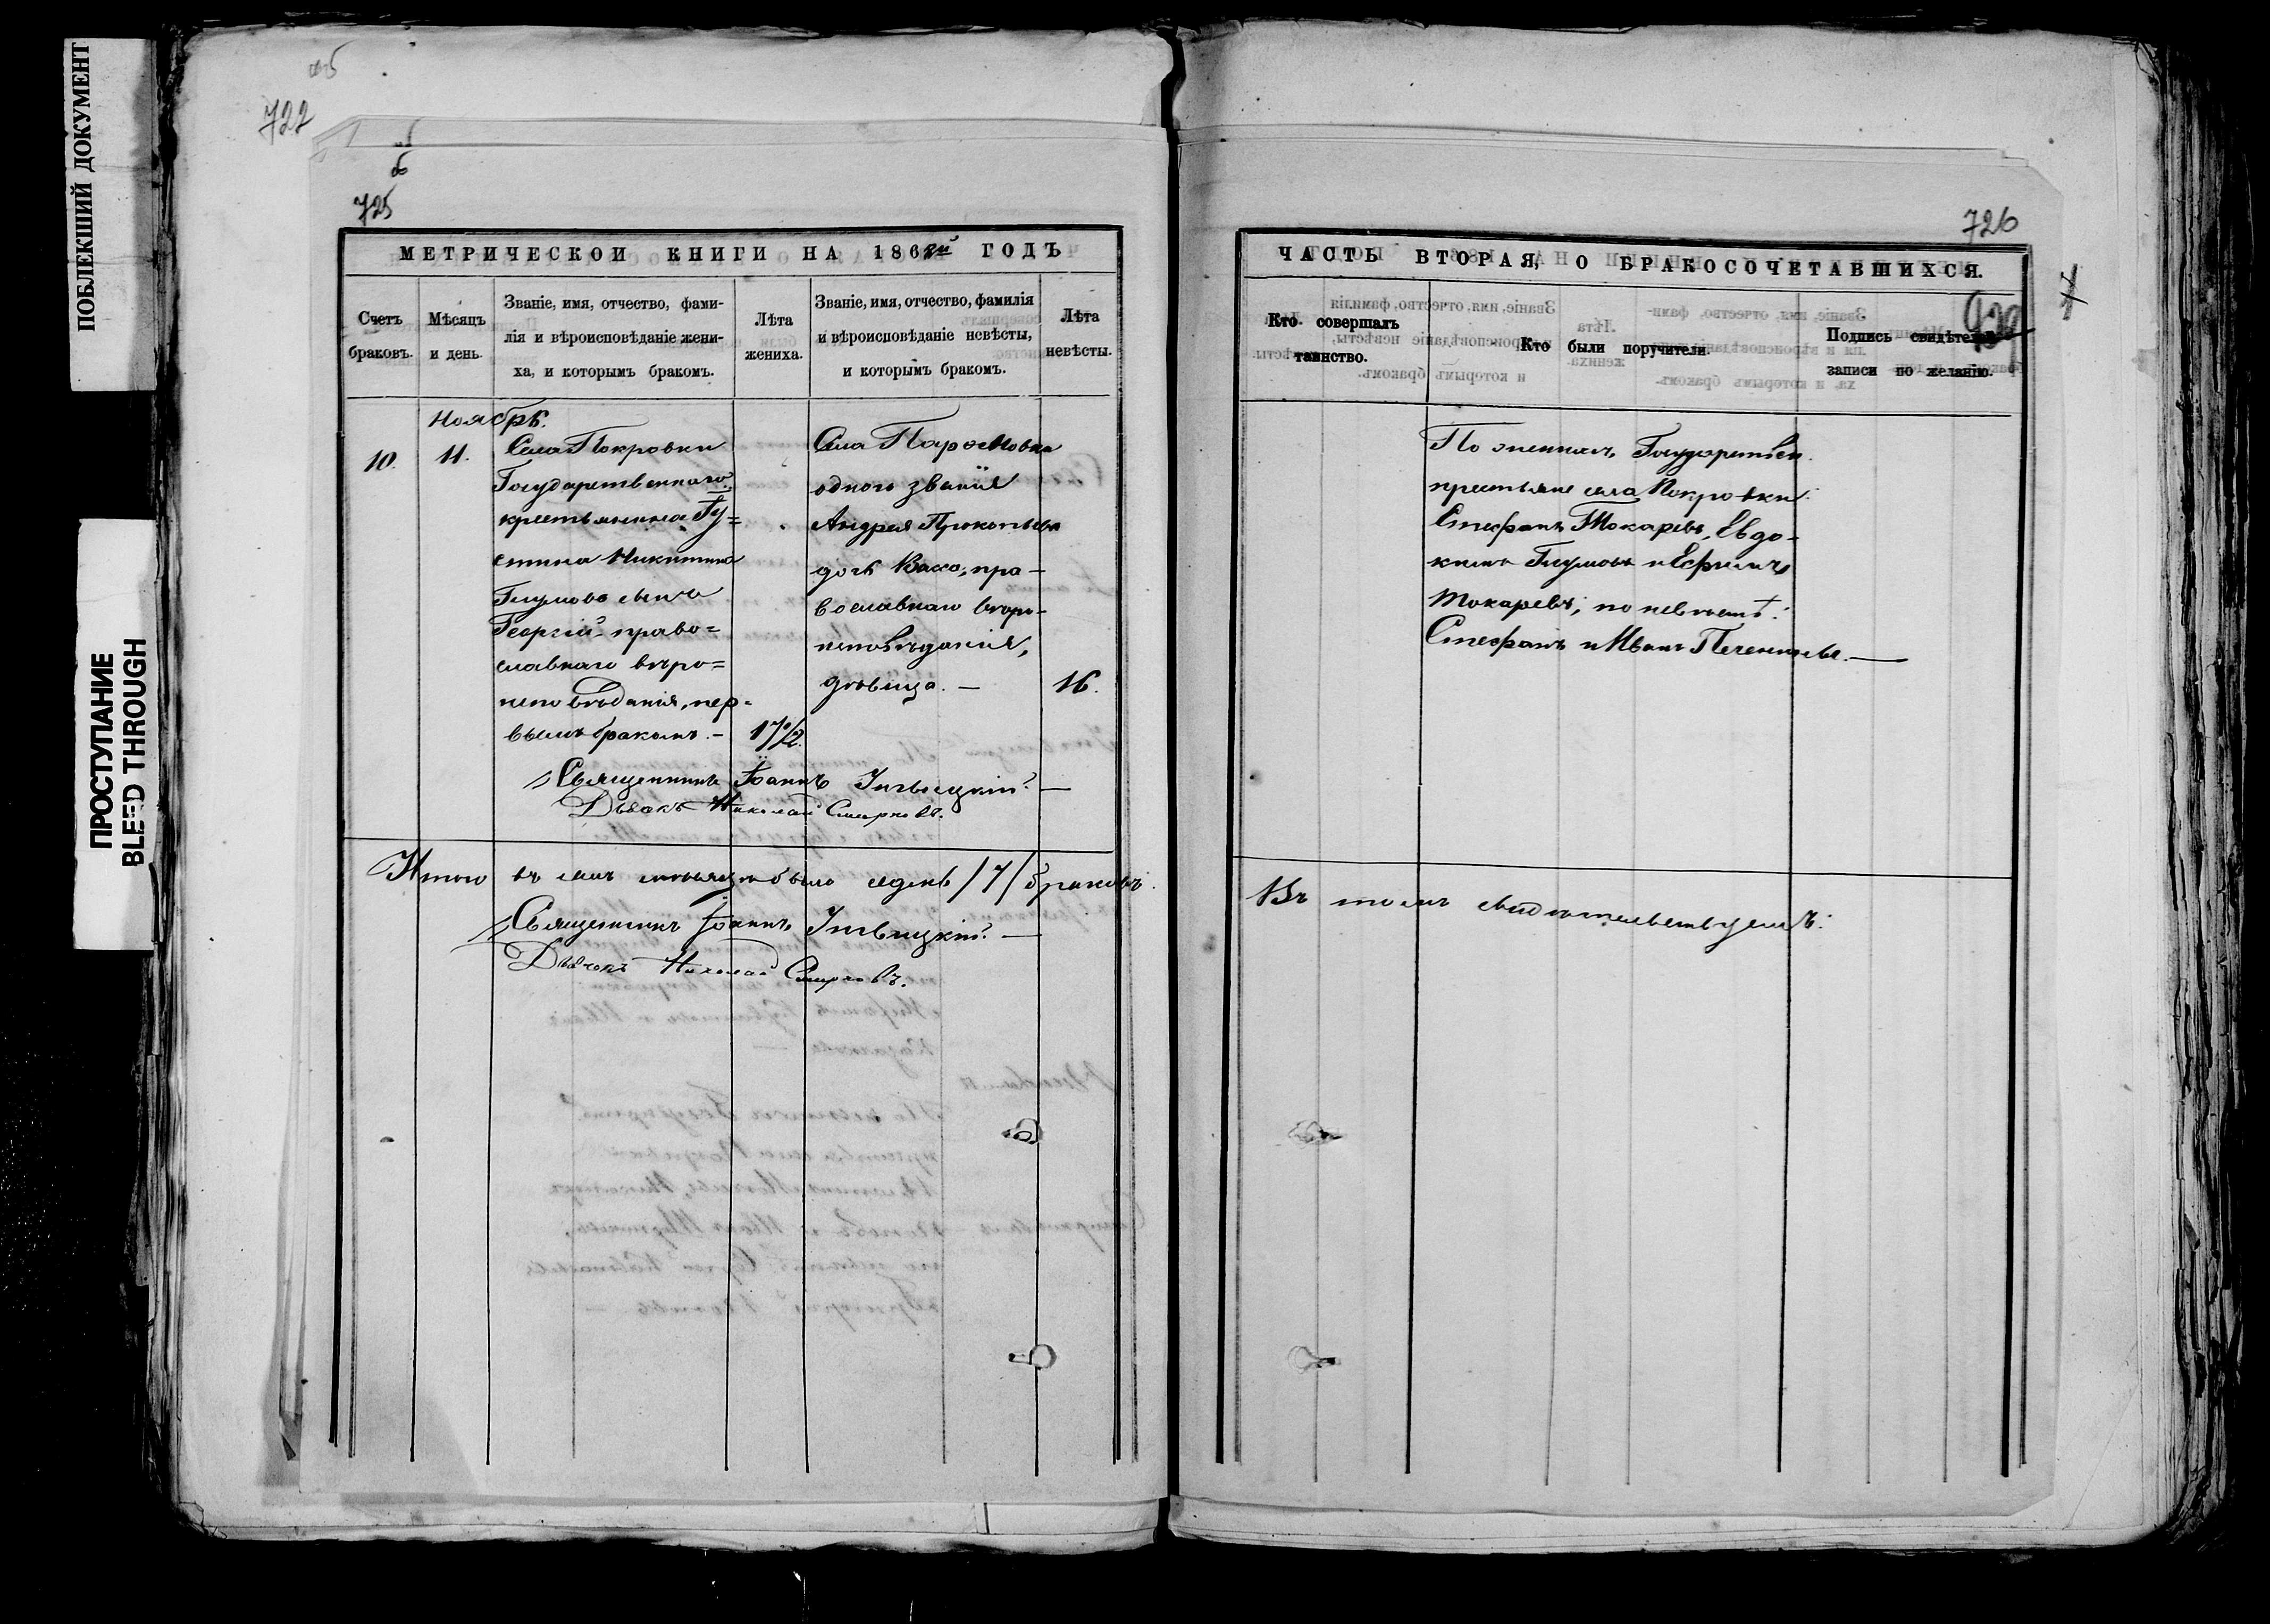 ПОБЛЕКШИЙ ДОКУМЕНТ
ПРОСТУПАНИЕ
BLEED THROUGH
722
725
МЕТРИЧЕСКОЙ КНИГИ НА 1868й ГОДЪ
Счетъ
браковъ.
Мѣсяцъ
и день.
Званіе, имя, отчество, фами-
лія и вѣроисповѣданіе жени-
ха, и которымъ бракомъ.
Лѣта
жениха.
Званіе, имя, отчество, фамилія
и вѣроисповѣданіе невѣсты,
и которымъ бракомъ.
Лѣта
невѣсты.
Ноябрь.
10.
11.
Села Покровки
Государственнаго
крестьянина Гу=
стина Никитина
Глумова сынъ
Георгій право=
славнаго вѣро=
исповѣданія, пер-
вымъ бракомъ. –
17½.
Села
одного званія
Андрея Прокопьева
дочь Васса, пра-
вославнаго вѣро-
исповѣданія,
дѣвица. –
16.
Священникъ Іоаннъ
Дьячокъ Николай Смирновъ.
Итого въ семъ мѣсяцѣ было седмь /7/ браковъ.
Священникъ Іоаннъ
Дьячокъ Николай Смирновъ.
726
ЧАСТЬ ВТОРАЯ, О БРАКОСОЧЕТАВШИХСЯ.
Кто совершалъ
таинство.
Кто были поручители.
Подпись свидѣтелей
записи по желанію.
По женихѣ, Государствен.
крестьяне села Покровки:
Стефанъ Токаревъ, Евдо-
кимъ Глумовъ и Ефимъ
Токаревъ; по невѣстѣ:
Стефанъ и Иванъ
Въ томъ свидѣтельствуемъ: